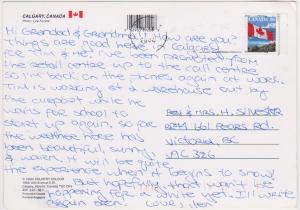 CALGARY, CANADA
Photo: Lyle Krannet
CANADA
Hi Grandad & Grandma! How are you?
Things are good here in Calgary
for Tim & I. I've been promoted from
the retail centre up to the call centre,
so I'm back on the phones again at work.
Tim is working at a warehouse out by
the airport while he
waits for school to
start up again, so far
the weather here has
been beautiful, sunny
& warm, it will be quite
the experience when it begins to snow!
But hopefully that won't be
I'll write
again soon! Love,
Rev & Mrs. H. Silvester
661 Rogers Rd.
Victoria, BC
© 2000 COUNTRY COLOUR
Calgary, Alberta, Canada
Printed in Canada